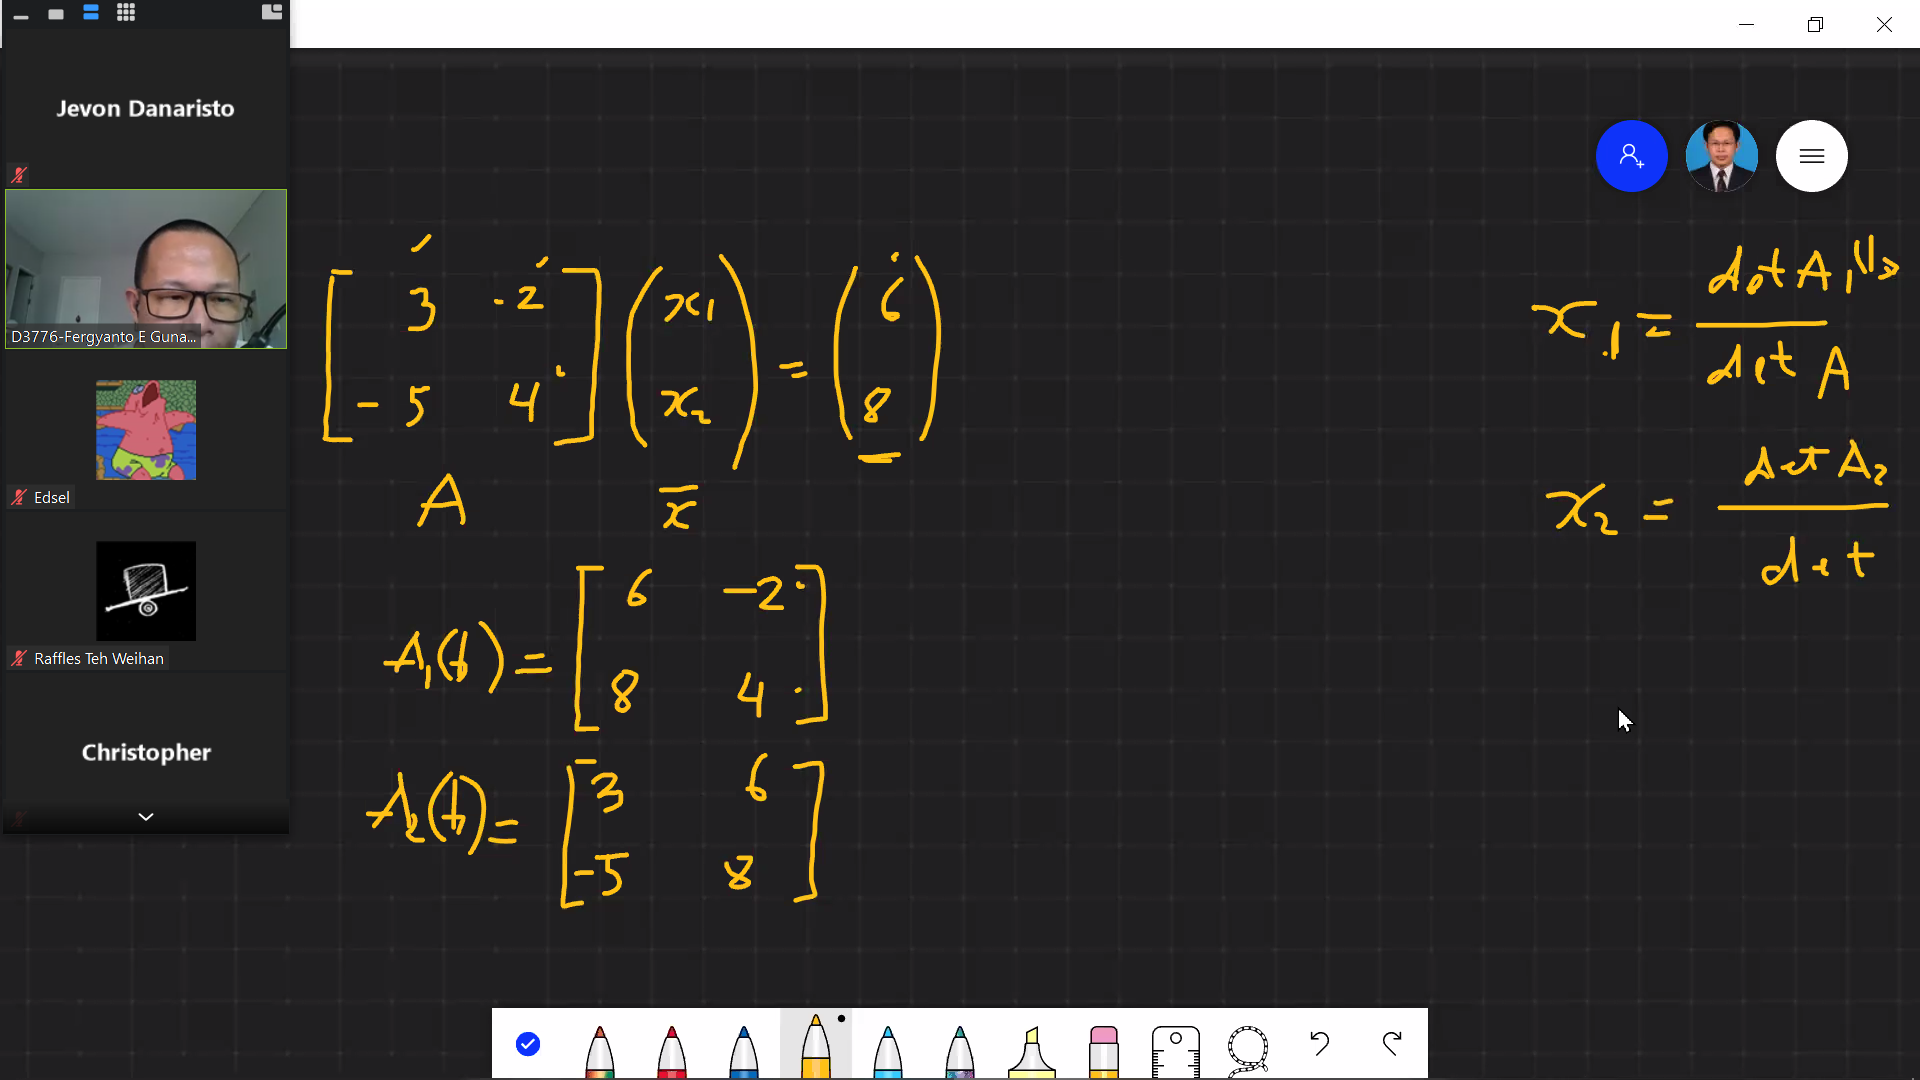 Jevon Danaristo
D3776-Fergyanto E Guna...
Edsel
Raffles Teh Weihan
Christopher
[ 3 -2 ] ( x1 ) = ( 6 )
[ -5 4 ] ( x2 ) ( 8 )
A x̄
A1(b) = [ 6 -2 ]
[ 8 4 ]
A2(b) = [ 3 6 ]
[ -5 8 ]
x1 = det A1
det A
x2 = det A2
det